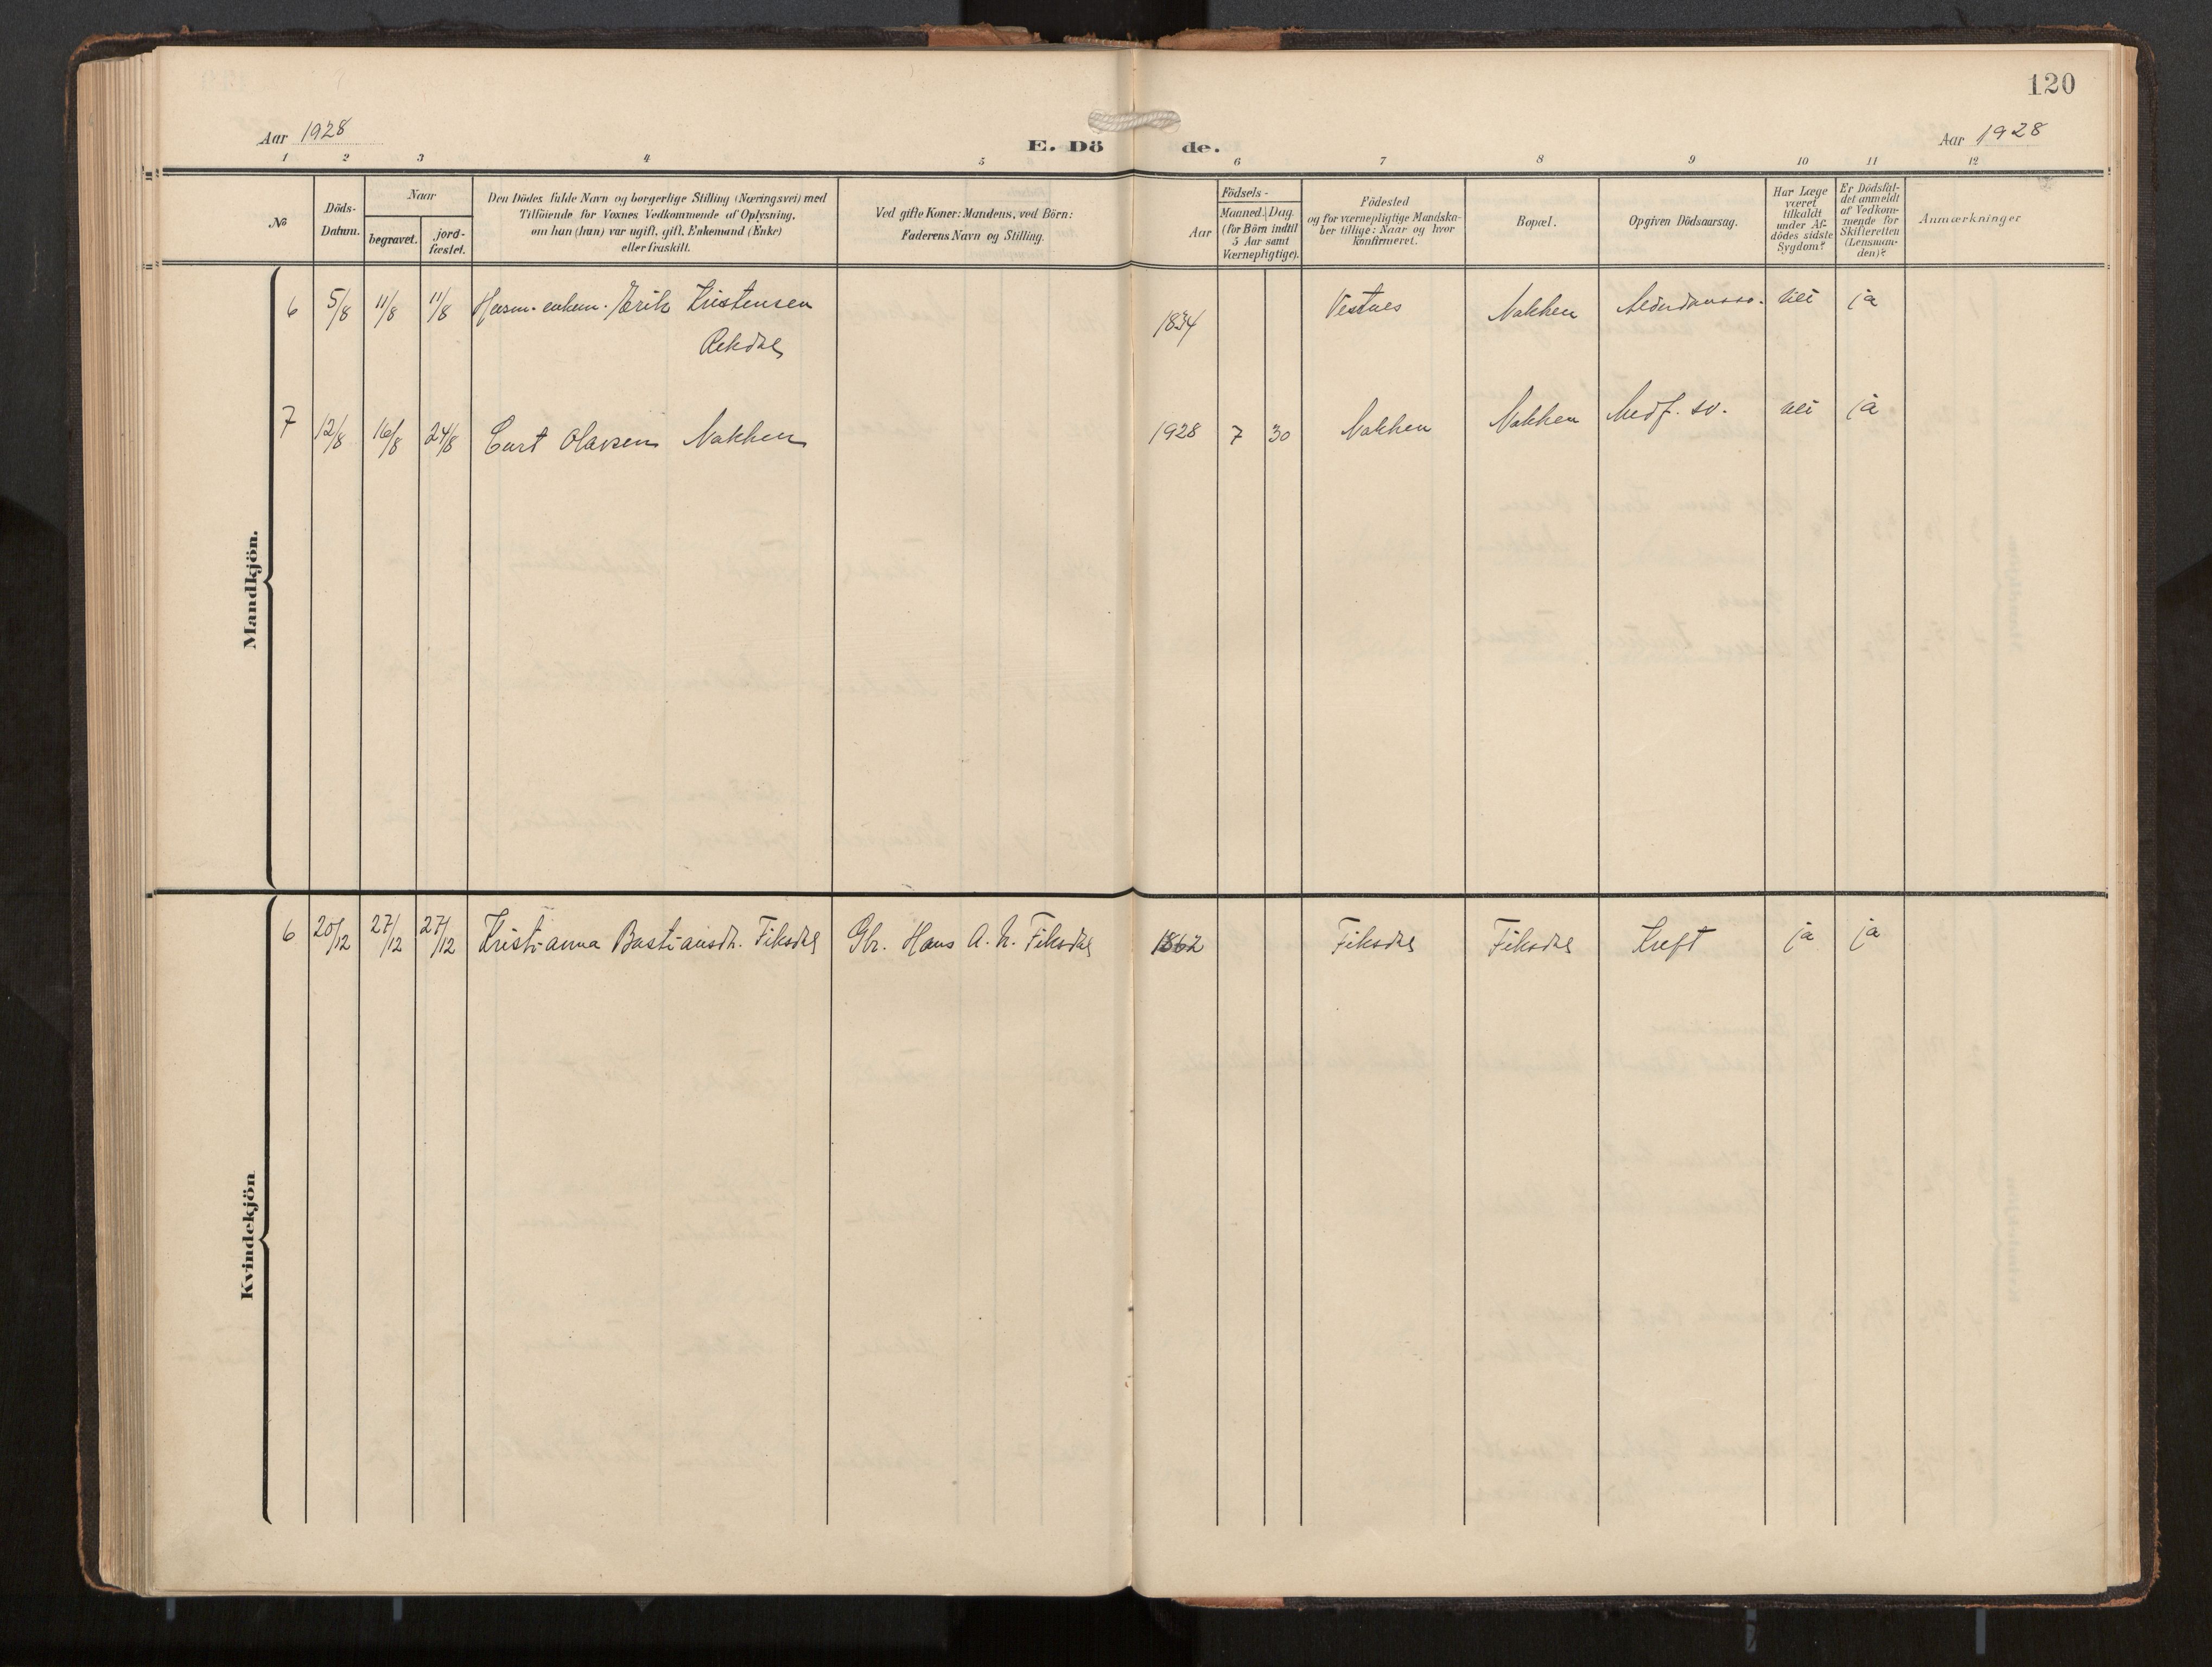 120
Aar 1928
Aar 1928
E. Dö de.
1 2 3 4 5 6 7 8 9 10 11 12
No
Döds-
Datum.
Naar
begravet.
jord-
fæstet.
Den Dödes fulde Navn og borgerlige Stilling (Næringsvei) med
Tilföiende for Voxnes Vedkommende af Oplysning,
om han (hun) var ugift, gift, Enkemand (Enke)
eller fraskilt.
Ved gifte Koner: Mandens, ved Börn:
Faderens Navn og Stilling.
Födsels-
Aar
Maaned. Dag
(for Börn indtil
5 Aar samt
Værnepligtige).
Födested
og for værnepligtige Mandska-
ber tillige: Naar og hvor
konfirmeret.
Bopæl.
Opgiven Dödsaarsag.
Har Læge
været
tilkaldt
under Af-
dödes sidste
Sygdom?
Er Dödsfal-
det anmeldt
af Vedkom-
mende for
Skifteretten
(Lensman-
den)?
Anmærkninger
Mandkjön.
6 5/8 11/8 11/8 enkem. Erik Kristensen 1834 Vestnes Nakken nei ja
Rekdal
7 12/8 16/8 24/8 Curt Olavsen Nakken 1928 7 30 Nakken Nakken Medf. sv. nei ja
Kvindekjön
6 20/12 27/12 27/12 Kristianna Bastiansdt. Fiksdal Gbr. Hans A. N. Fiksdal 1862 Fiksdal Fiksdal Kreft ja ja